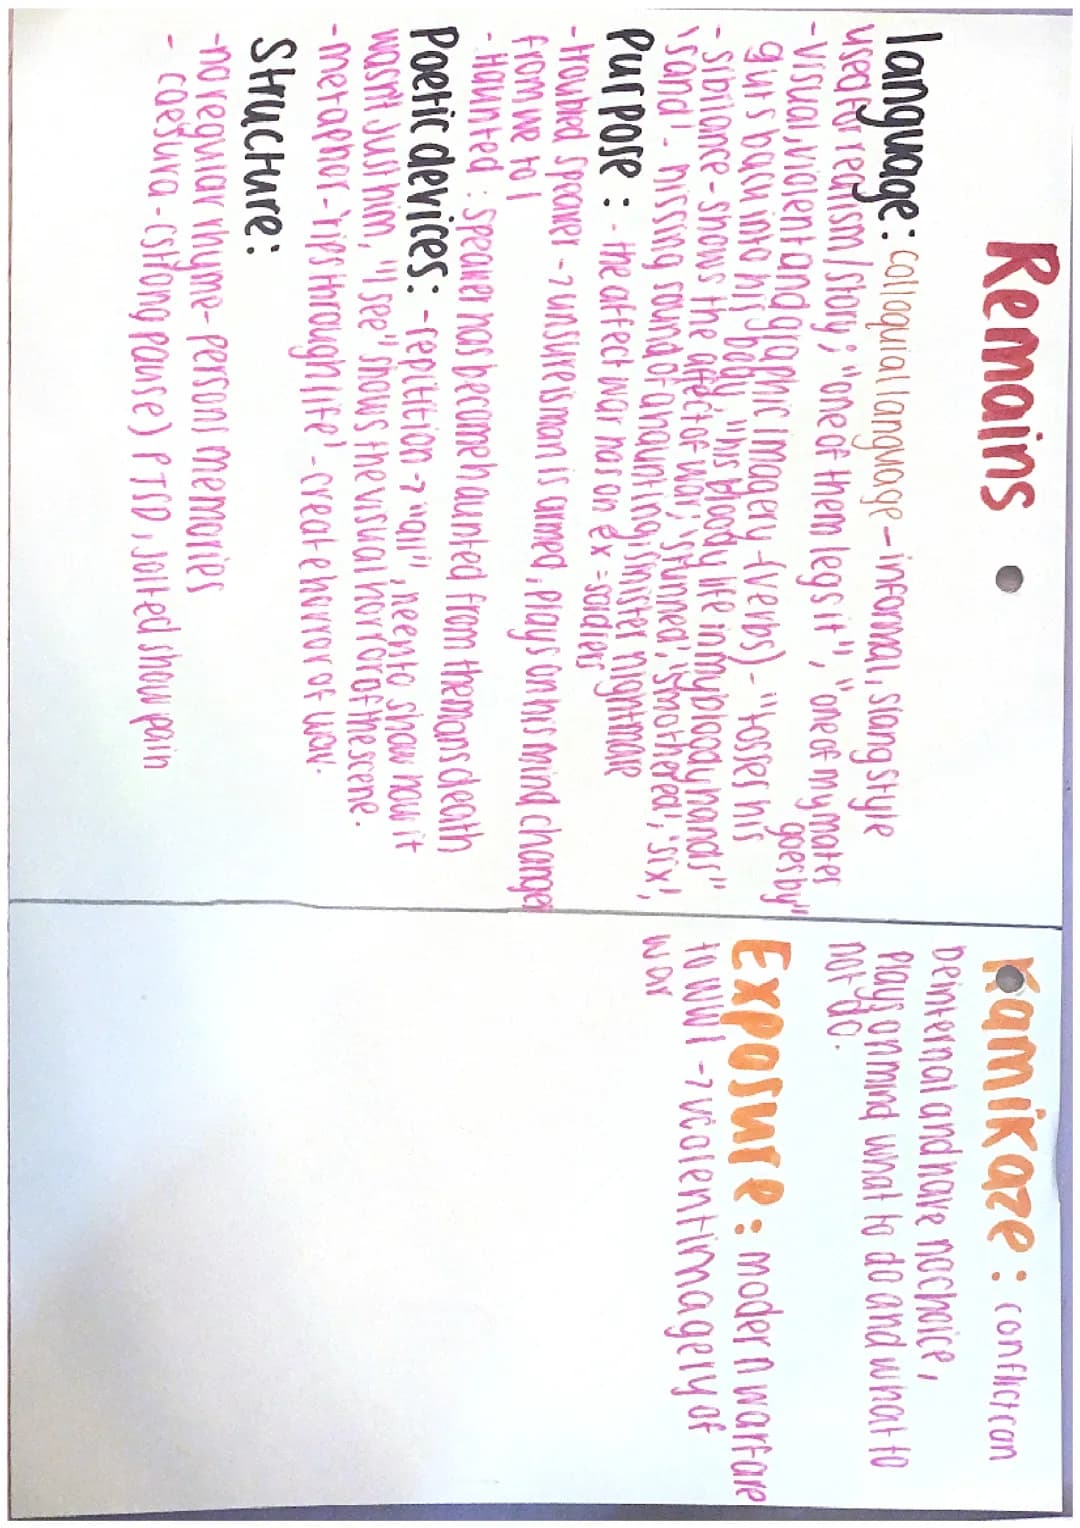 Remains
language: colloquial language - informal, slang style
used for realism/story; "one of them legs it", "one of my mates
goes by"
- visual, violent and graphic imagery - (verbs) - "tosses his
guts back into his body", "his bloody life in my bloody hands"
- Sibilance - shows the affect of war, 'stunned', 'smothered', 'six',
'sand' - hissing sound of a haunting sinister nightmare
Purpose: - the affect war has on ex-soldiers
- troubled speaker -> unsure is man is armed, plays on his mind change
from we to I
- Haunted: speaker has become haunted from the mans death
Poetic devices: - repitition -> "all", keen to show how it
wasn't just him, "I see" shows the visual horror of the scene.
- metaphor - 'rips through life' - creat e horror of war.
Structure:
- no regular rhyme - personl memories
- caesura - (strong pause) PTSD, jolted show pain
Kamikaze: conflict can
be internal and have no choice,
plays on mind what to do and what to
not do.
Exposure: modern warfare
to WW1 -> violent imagery of
war